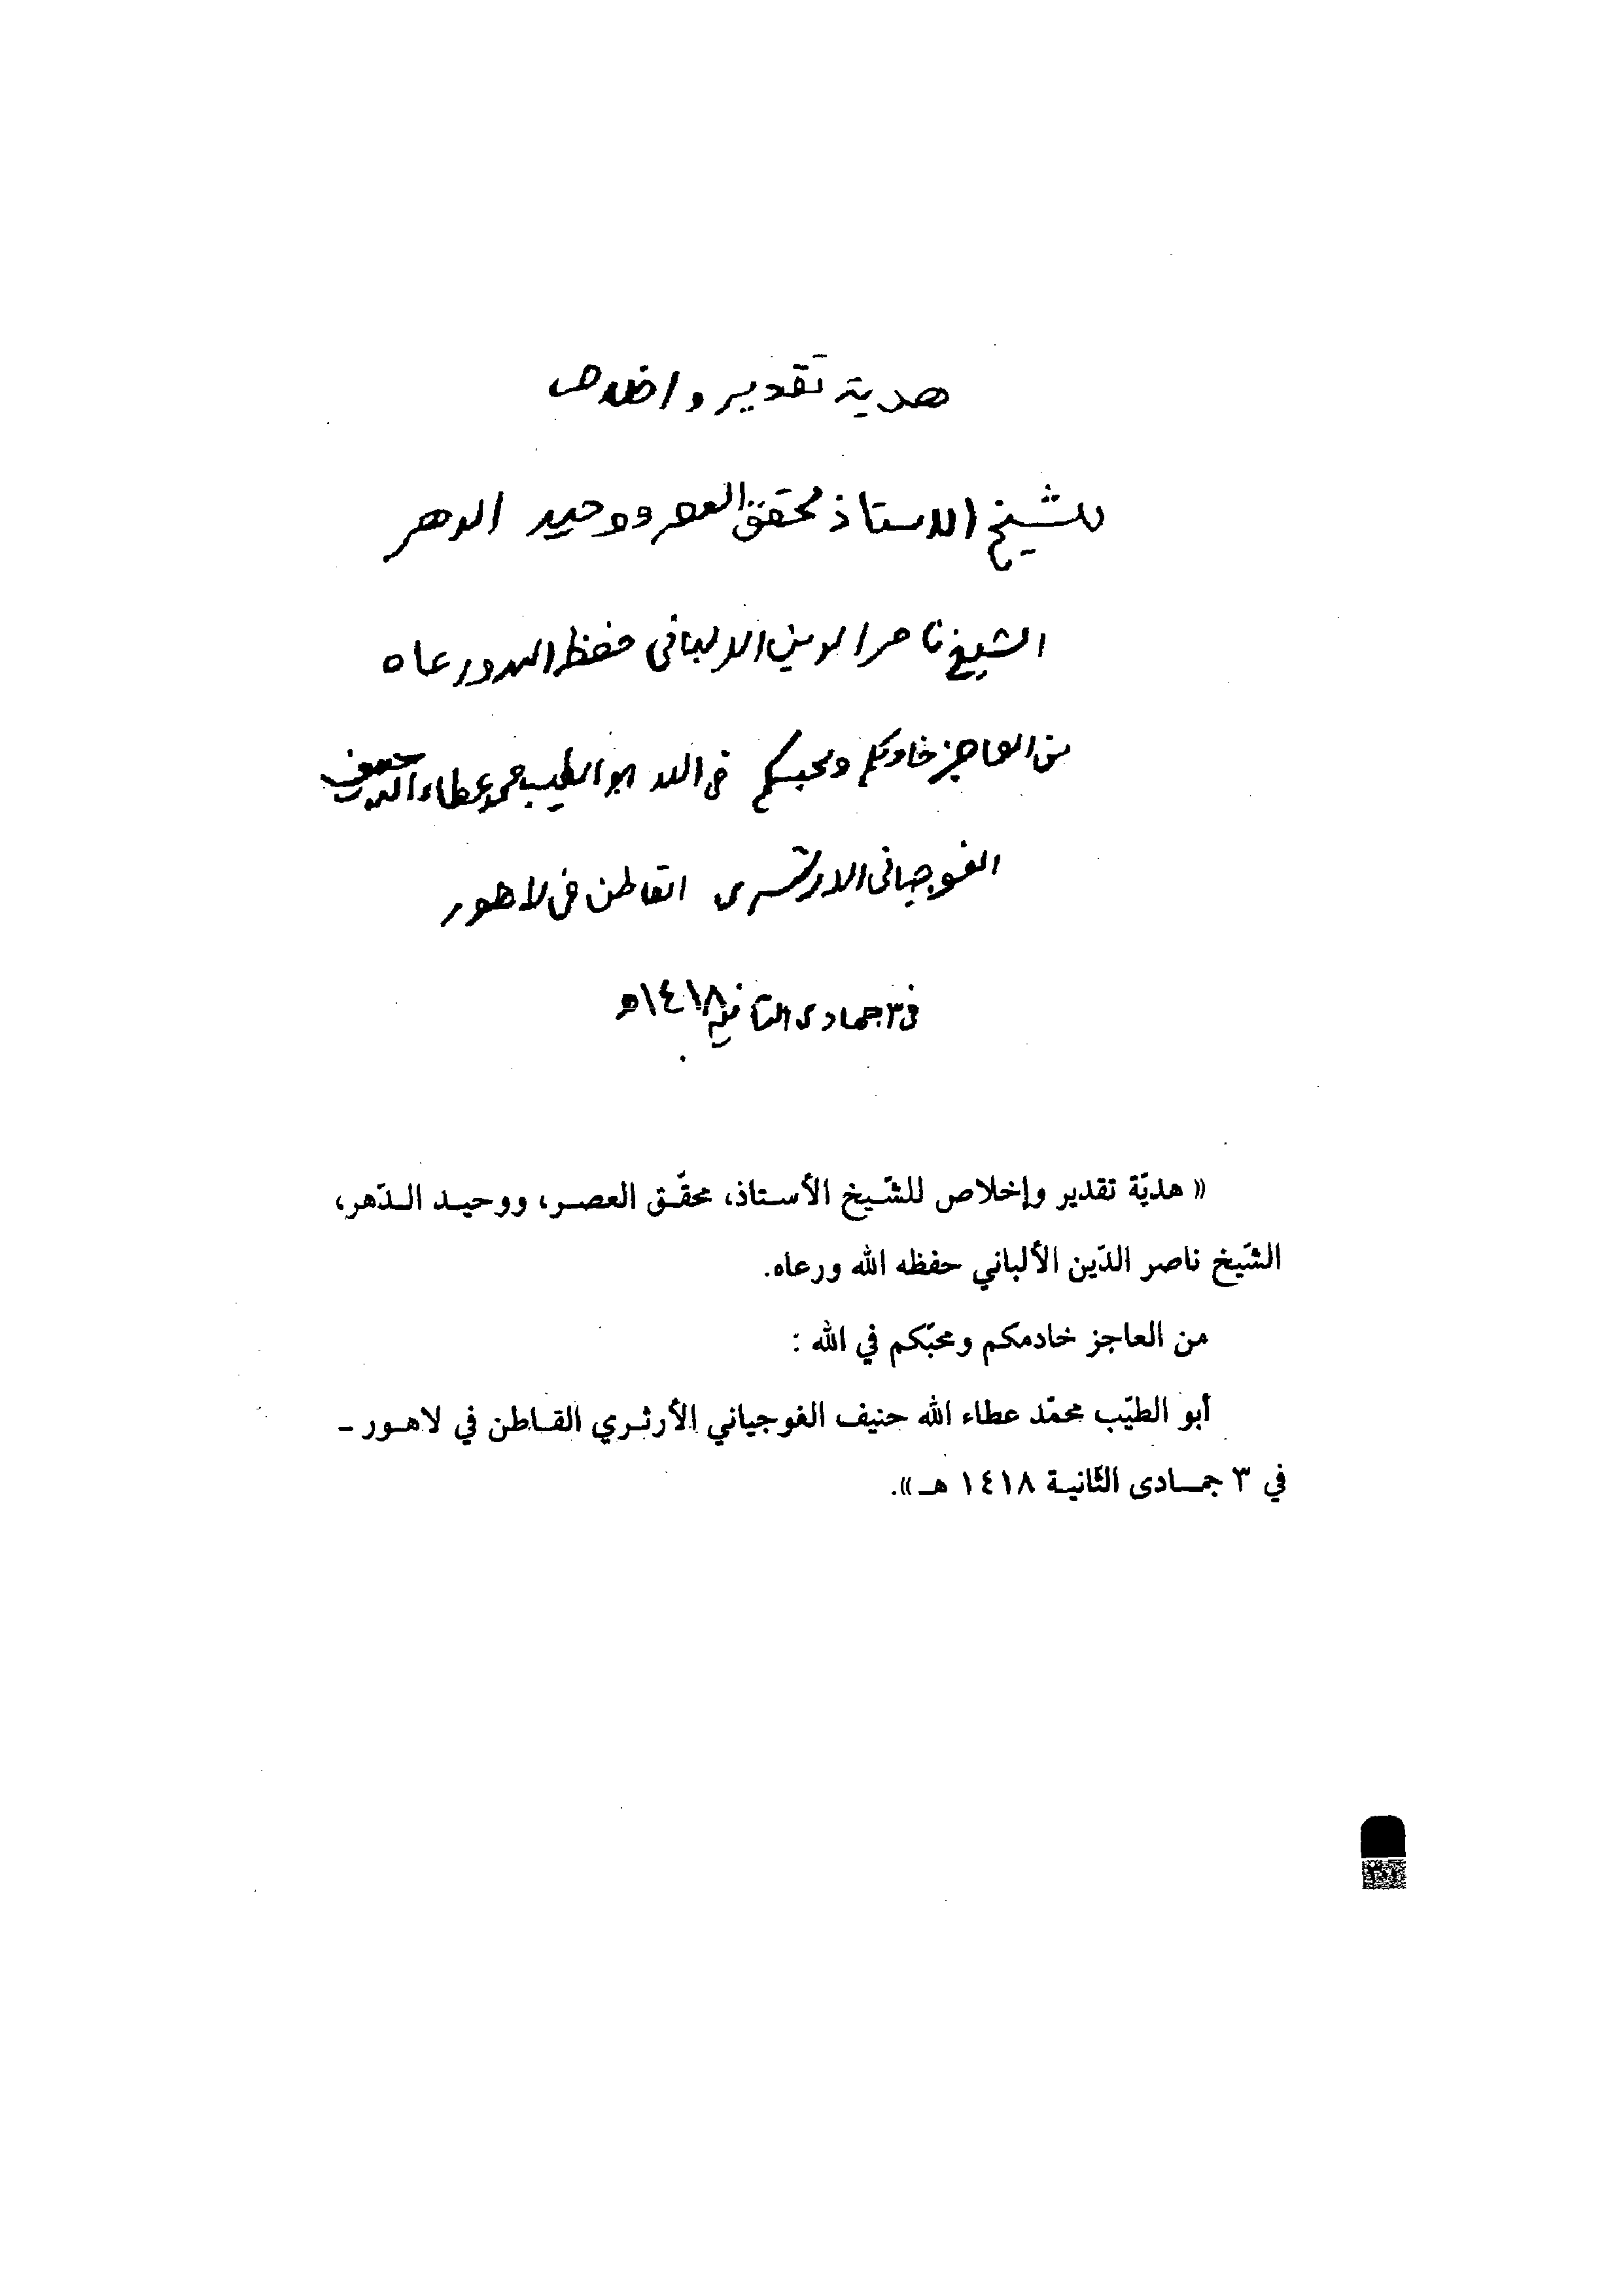 هدية تقدير واخلاص
للشيخ الاستاذ محقق العصر ووحيد الدهر
الشيخ ناصر الدين الالبانى حفظه الله ورعاه
من العاجز خادمكم ومحبكم فى الله ابو الطيب محمد عطاء الله حنيف
الفوجيانى الارثرى القاطن فى لاهور
فى ٣ جمادى الثانية ١٤١٨ھ
« هديّة تقدير وإخلاص للشّيخ الأستاذ، محقّق العصر، ووحيد الدّهر،
الشّيخ ناصر الدّين الألباني حفظه الله ورعاه.
من العاجز خادمكم ومحبّكم في الله :
أبو الطيّب محمّد عطاء الله حنيف الفوجياني الأرثري القاطن في لاهور -
في ٣ جمادى الثّانية ١٤١٨ هـ».